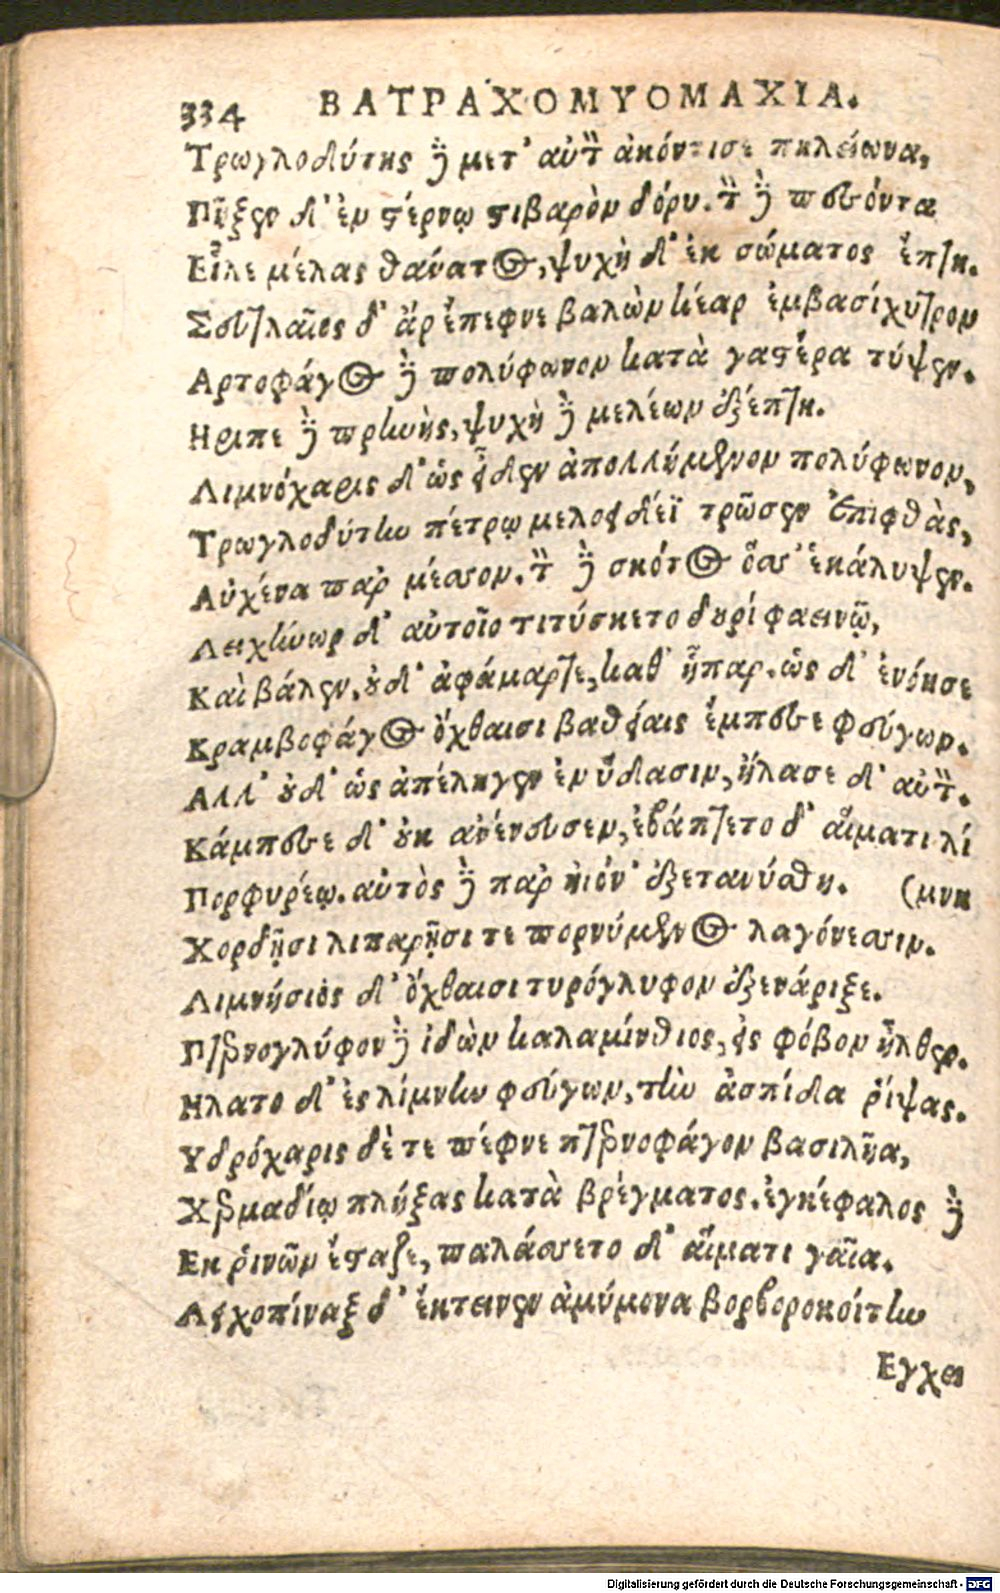 334 ΒΑΤΡΑΧΟΜΥΟΜΑΧΙΑ.
Τρωγλοδύτης δὲ μετ' αὐτὸν ἀκόντισε πηλείωνα,
Πῆξεν δ' ἐν στέρνῳ στιβαρὸν δόρυ. τὸν δὲ πεσόντα
Εἷλε μέλας θάνατος, ψυχὴ δ' ἐκ σώματος ἔπτη.
Σευτλαῖος δ' ἄρ ἔπεφνε βαλὼν κέαρ ἐμβασίχυτρον
Αρτοφάγος δὲ πολύφωνον κατὰ γαστέρα τύψεν.
Ηριπε δὲ πρηνὴς, ψυχὴ δὲ μελέων ἐξέπτη.
Λιμνόχαρις δ' ὡς εἶδεν ἀπολλύμενον πολύφωνον,
Τρωγλοδύτην πέτρῳ μελοειδέϊ τρῶσεν ἐπιφθὰς,
Αὐχένα παρ μέσσον. τὸν δὲ σκότος ὄσσ' ἐκάλυψεν.
Λειχήνωρ δ' αὐτοῖο τιτύσκετο δουρί φαεινῷ,
Καὶ βάλεν, οὐδ' ἀφάμαρτε, καθ' ἧπαρ. ὡς δ' ἐνόησε
Κραμβοφάγος ὄχθαισι βαθείαις ἔμπεσε φεύγων.
Αλλ' οὐδ' ὡς ἀπέληγεν ἐν ὕδασιν, ἤλασε δ' αὐτόν.
Κάμπεσε δ' οὐκ ἀνένευσεν, ἐβάπτετο δ' αἵματι λί
Πορφυρέῳ. αὐτὸς δὲ παρ ἠιόν' ἐξετανύσθη. (μνη
Χορδῇσι λιπαρῇσι τε πορνύμενος λαγόνεσσιν.
Λιμνήσιὸς δ' ὄχθαισι τυρόγλυφον ἐξενάριξε.
Πτερνογλύφον δὲ ἰδὼν καλαμίνθιος, εἰς φόβον ἦλθεν.
Ηλατο δ' ἐς λίμνην φεύγων, τὴν ἀσπίδα ῥίψας.
Υδρόχαρις δὲ τε πέφνε πτερνοφάγον βασιλῆα,
Χερμαδίῳ πλήξας κατὰ βρέγματος. ἐγκέφαλος δὲ
Εκ ῥινῶν ἔσταζε, παλάσσετο δ' αἵματι γαῖα.
Λειχοπίναξ δ' ἔκτεινεν ἀμύμονα βορβοροκοίτην
Εγχει
Digitalisierung gefördert durch die Deutsche Forschungsgemeinschaft - DFG